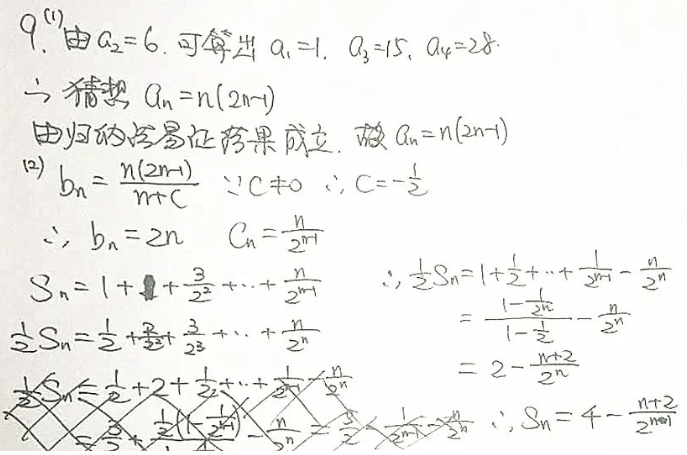 9.(1) 由a₂=6. 可算出 a₁=1. a₃=15. a₄=28.
∴ 猜想 aₙ=n(2n-1)
由归纳法易证结果成立. 故 aₙ=n(2n-1)
(2) bₙ = n(2n-1)/(n+C) ∵C≠0 ∴ C=-1/2
∴ bₙ=2n Cₙ=n/2ⁿ⁻¹
Sₙ=1+1+3/2²+…+n/2ⁿ⁻¹
1/2Sₙ=1/2+2/2²+3/2³+…+n/2ⁿ
1/2Sₙ=1/2+2+1/2+…+1/2ⁿ⁻¹-n/2ⁿ
∴ 1/2Sₙ=1+1/2+…+1/2ⁿ⁻¹-n/2ⁿ
=(1-1/2ⁿ)/(1-1/2)-n/2ⁿ
=2-(n+2)/2ⁿ
∴ Sₙ=4-(n+2)/2ⁿ⁻¹